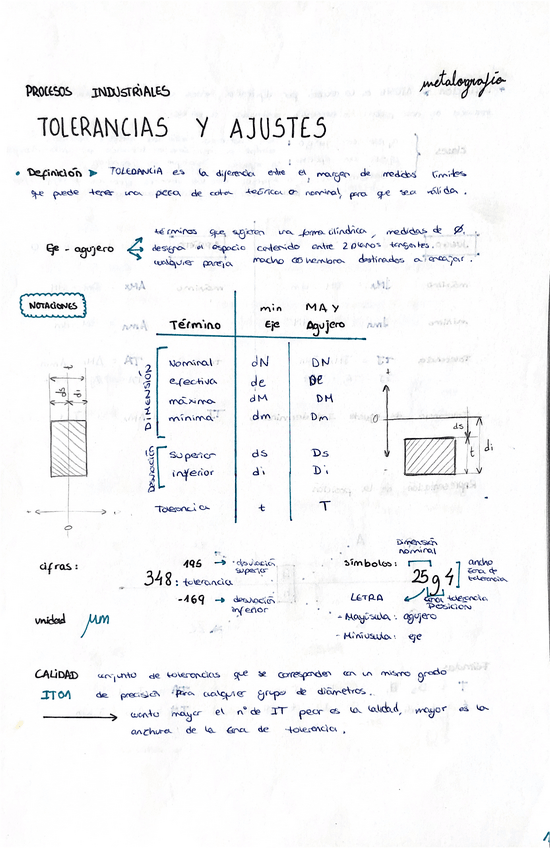 metalografía
PROCESOS INDUSTRIALES
TOLERANCIAS Y AJUSTES
• Definición ➤ TOLERANCIA es la diferencia entre el margen de medidas límites
que puede tener una pieza de cota teórica o nominal, para que sea válida.
términos que sugieren una forma cilíndrica, medidas de Ø.
Eje - agujero
designa el espacio contenido entre 2 planos tangentes.
cualquier pareja macho hembra destinados a encajar.
NOTACIONES
min MAY
Término Eje Agujero
DIMENSIÓN
Nominal dN DN
efectiva de De
máxima dM DM
mínima dm Dm
DESVIACIÓN
Superior ds Ds
inferior di Di
Tolerancia t T
t
ds di
0
0
ds
t di
cifras:
195 → desviación superior
348: tolerancia
-169 → desviación inferior
unidad μm
símbolos:
Dimensión nominal
25g4
ancho zona de tolerancia
LETRA
zona tolerancia
POSICIÓN
- Mayúsula: agujero
- Miniusula: eje
CALIDAD conjunto de tolerancias que se corresponden con un mismo grado
IT01 de precisión para cualquier grupo de diámetros.
→ cuanto mayor el nº de IT peor es la calidad, mayor es la
anchura de la zona de tolerancia.
1